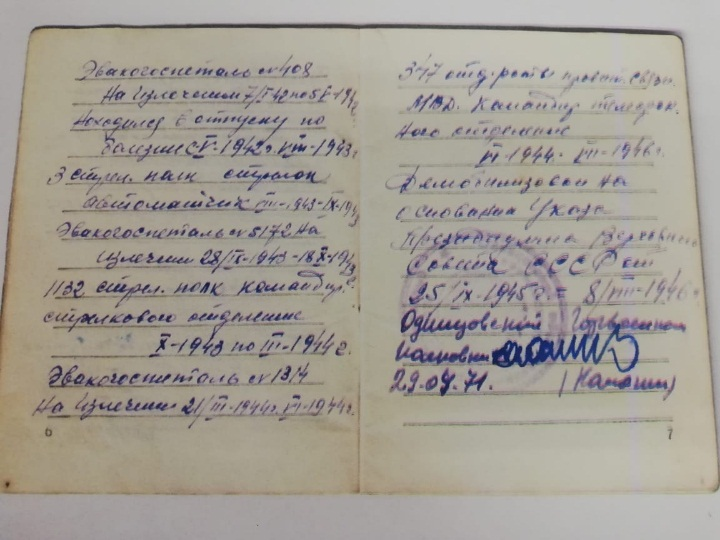 Эвакогоспеталь № 408
На излечении 7/I-42 по 5 V-1942
Находился в отпуску по
болезни с V-1942г. VIII-1943г
3 стрел. полк стрелок
автоматчик VIII-1943-IX-1943
Эвакогоспеталь № 5172 на
излечении 28/IX-1943-18 X-1943г
1132 стрел. полк командир
стрелкового отделение
X-1943 по III-1944г.
Эвакогоспеталь № 1314
На излечении 21/III-1944г. VI-1944г.
6
347 отд. роты правит. связи
МВД. Командир телефон
ного отделение
VI-1944г. VIII-1946г.
Демобилизован на
основании Указа
Президиума Верховного
Совета СССР от
25/IX-1945г. = 8/VIII-1946г
Одинцовский Горвоенком
полковник
29.07.71. (Каманин)
7